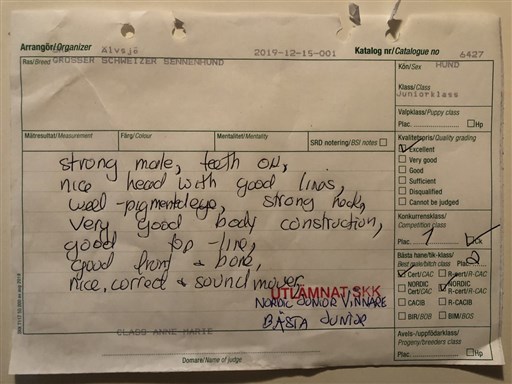 Arrangör/Organizer Älvsjö 2019-12-15-001 Katalog nr/Catalogue no 6427
Ras/Breed GROSSER SCHWEIZER SENNENHUND
Kön/Sex HUND
Klass/Class
Juniorklass
Valpklass/Puppy class
Plac. Hp
Mätresultat/Measurement Färg/Colour Mentalitet/Mentality SRD notering/BSI notes
Kvalitetspris/Quality grading
Excellent
Very good
Good
Sufficient
Disqualified
Cannot be judged
strong male, teeth ok,
nice head with good lines,
well-pigmented eye, strong neck,
very good body construction,
good top-line,
good front & bone,
nice, correct & sound mover
Konkurrensklass/
Competition class
Plac. 1 CK
Bästa hane/tik-klass/
Best male/bitch class Plac. 2
Cert/CAC R-cert/R-CAC
NORDIC Cert/CAC NORDIC R-cert/R-CAC
CACIB R-CACIB
BIR/BOB BIM/BOS
UTLÄMNAT SKK
NORDIC JUNIOR VINNARE
BÄSTA JUNIOR
Avels-/uppfödarklass/
Progeny/breeders class
Plac. Hp
CLASS ANNE-MARIE
Domare/Name of judge